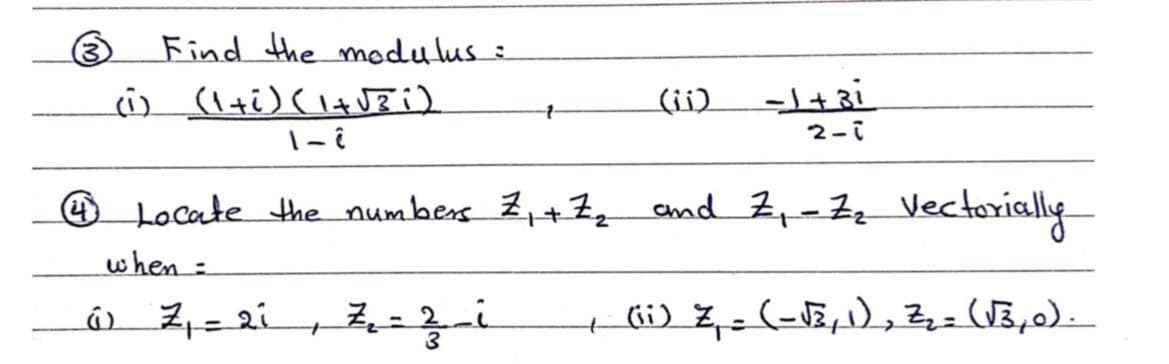 ③ Find the modulus :
(i) (1+i)(1+√3 i) / 1-i , (ii) -1+3i / 2-i
④ Locate the numbers Z₁+Z₂ and Z₁-Z₂ vectorially
when :
(i) Z₁ = 2i , Z₂ = 2/3 - i , (ii) Z₁ = (-√3, 1), Z₂ = (√3, 0).